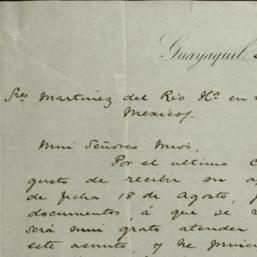 Guayaquil,
Sres Martinez del Rio Hos en
Mexico.
Mui Señores Mios.
Por el ultimo
gusto de recibir su
de fecha 18 de Agosto,
documentos, á que se
será mui grato atender
este asunto, y he